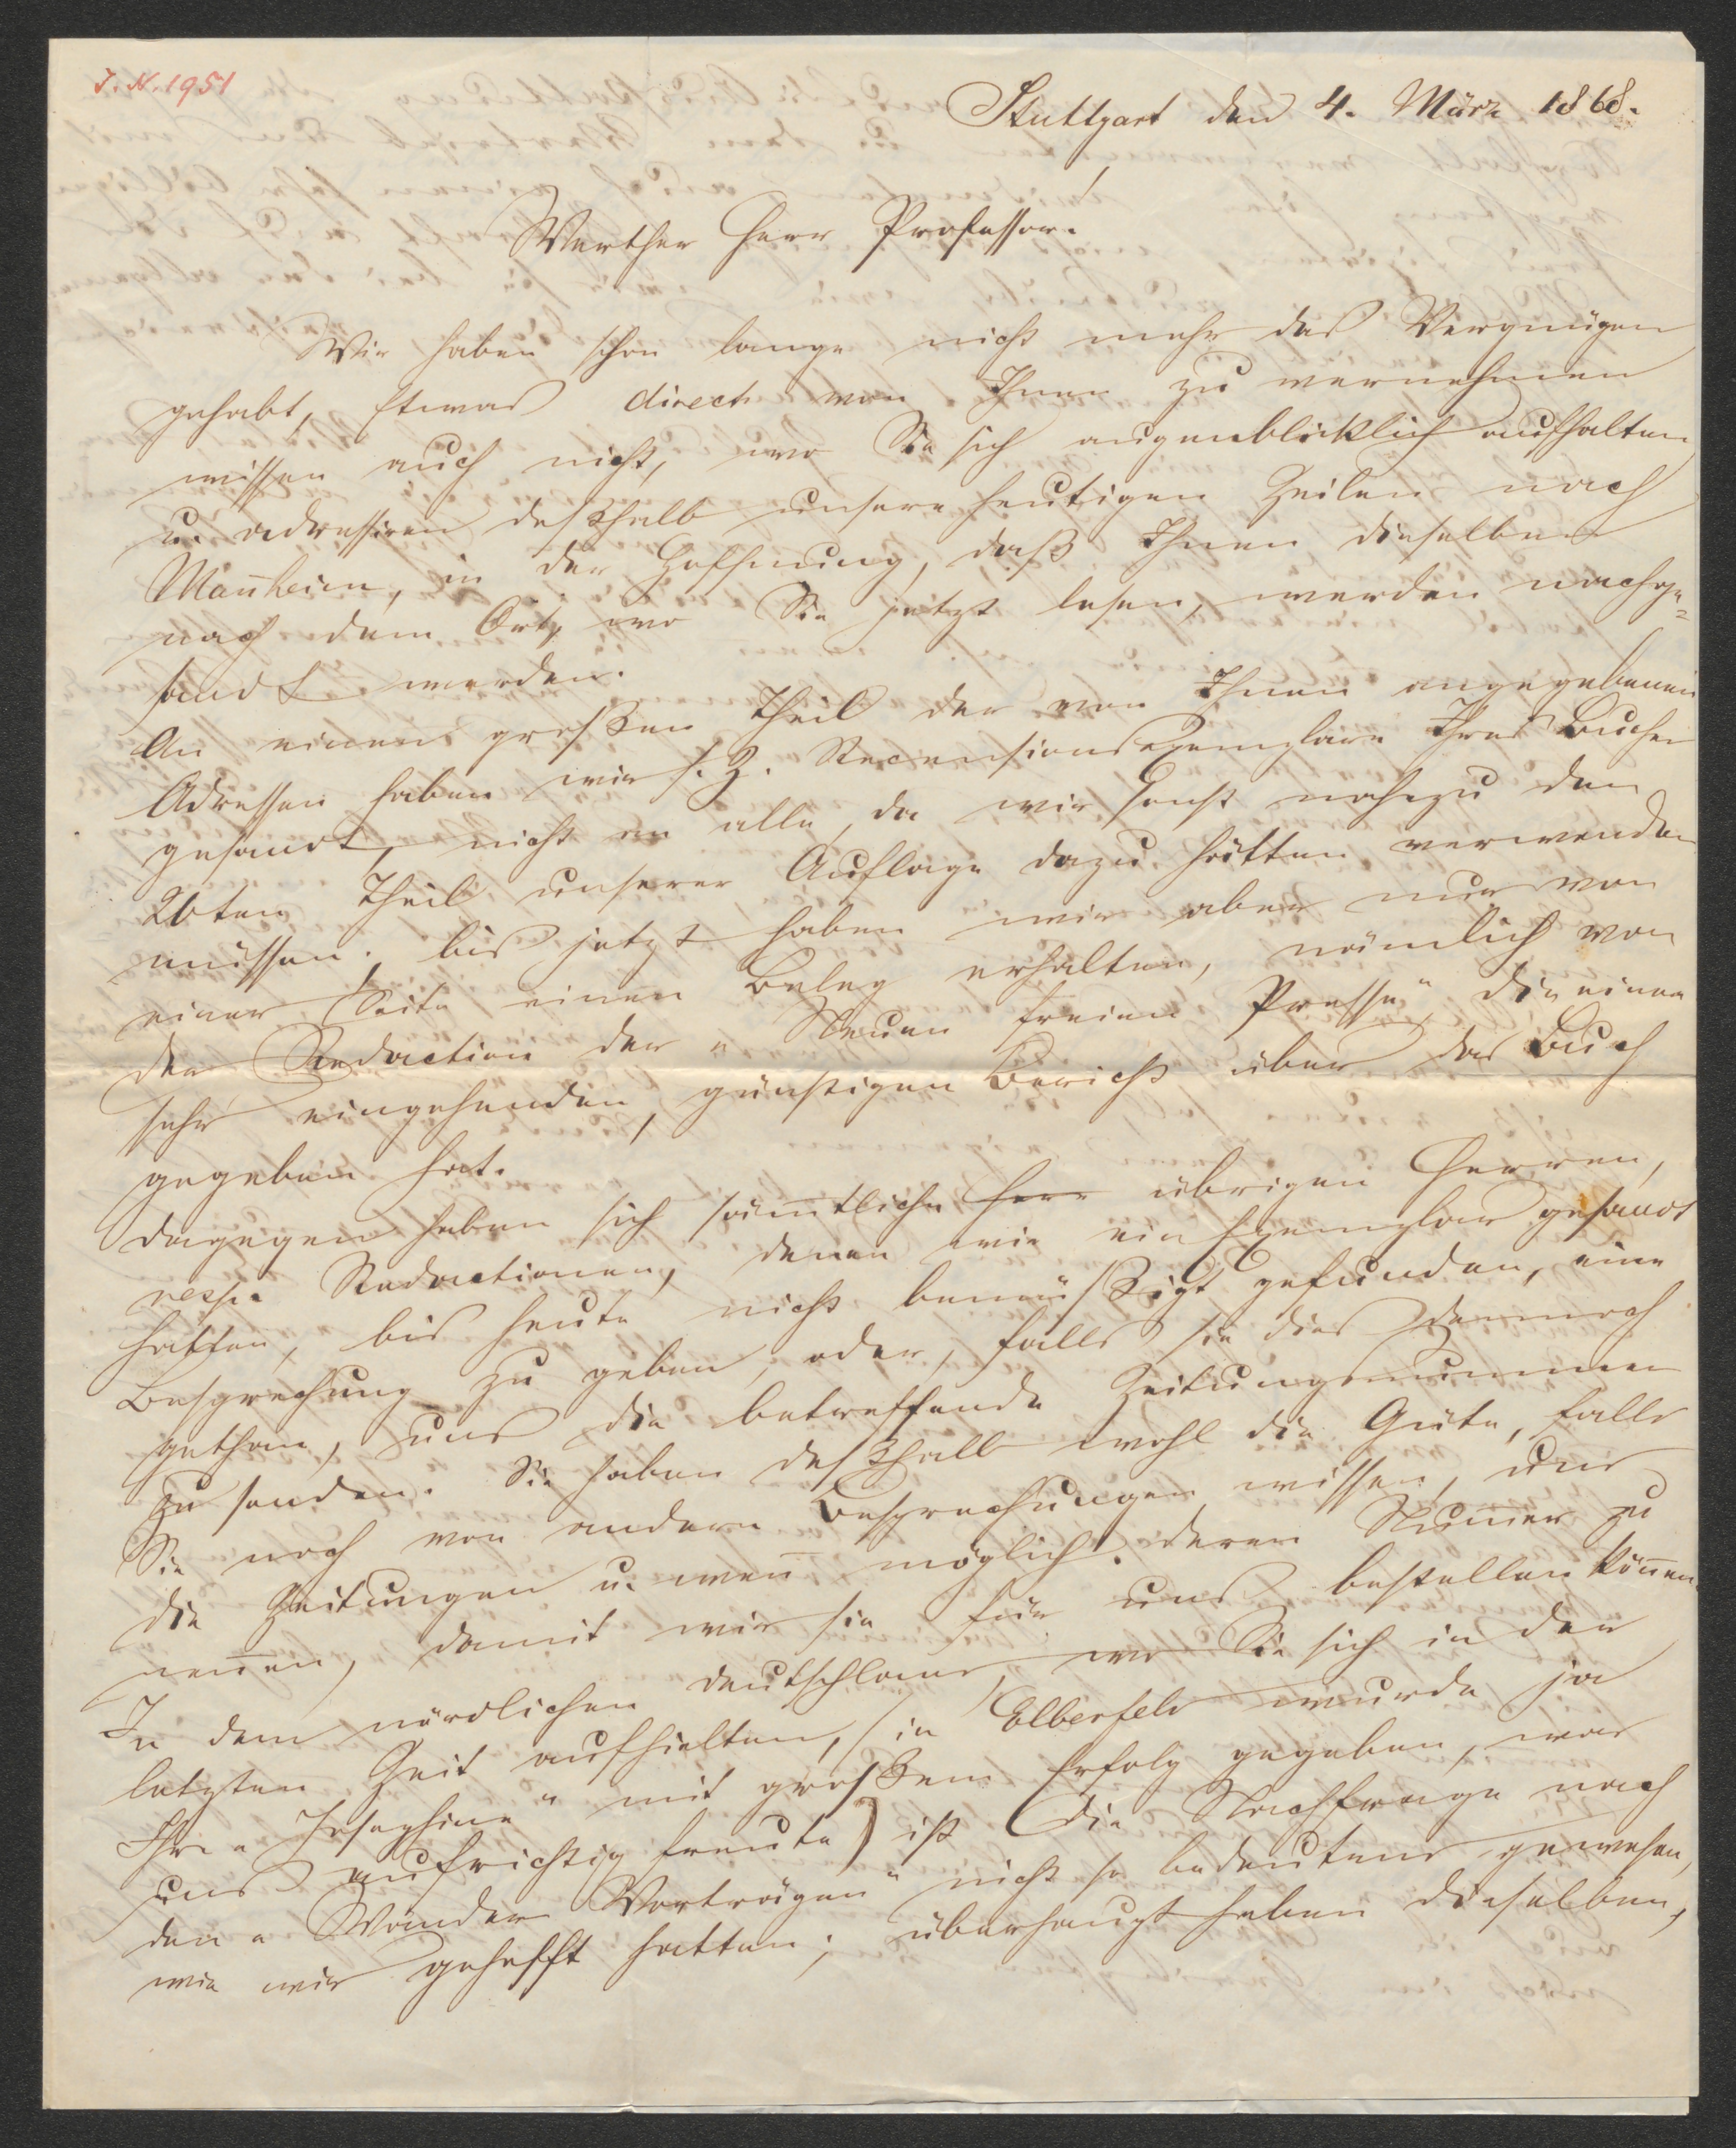 J. N. 1951
Stuttgart den 4. März 1868.
Werther Herr Professor!
Wir haben schon lange nicht mehr das Vergnügen
gehabt, Etwas direct von Ihnen zu vernehmen
wissen auch nicht, wo Sie sich augenblicklich aufhalten,
u. adressiren deßhalb unsere heutigen Zeilen nach
Mañheim, in der Hoffnung, daß Ihnen dieselben
nach dem Ort, wo Sie jetzt lesen, werden nachge=
sandt werden.
An einen großen Theil der von Ihnen angegebenen
Adressen haben wir s. Z. Recensionsexemplare Ihres Buches
gesandt, nicht an alle, da wir sonst nahezu den
20ten Theil unserer Auflage dazu hätten verwenden
müssen; bis jetzt haben wir aber nur von
einer Seite einen Beleg erhalten, nämlich von
der Redaction der „Neuen freien Presse“, die einen
sehr eingehenden, günstigen Bericht über das Buch
gegeben hat.
Dagegen haben sich säm̄tliche Herr übrigen Herren,
resp. Redactionen, denen wir ein Exemplar gesandt
hatten, bis heute nicht bemüßigt gefunden, eine
Besprechung zu geben, oder, falls sie dies dennoch
gethan, uns die betreffende Zeitungsnummer
zu senden. Sie haben deßhalb wohl die Güte, falls
Sie noch von andern Besprechungen wissen, uns
die Zeitungen u. weñ möglich deren Num̄er zu
neñen, damit wir sie für uns bestellen köñen.
In dem nördlichen Deutschland, wo Sie sich in der
letzten Zeit aufhielten, (in Elberfeld wurde ja
Ihre „Josephine“ mit großem Erfolg gegeben, was
uns aufrichtig freute) ist die Nachfrage nach
den „Wander Vorträgen“ nicht so bedeutend gewesen,
wie wir gehofft hatten; überhaupt haben dieselben,